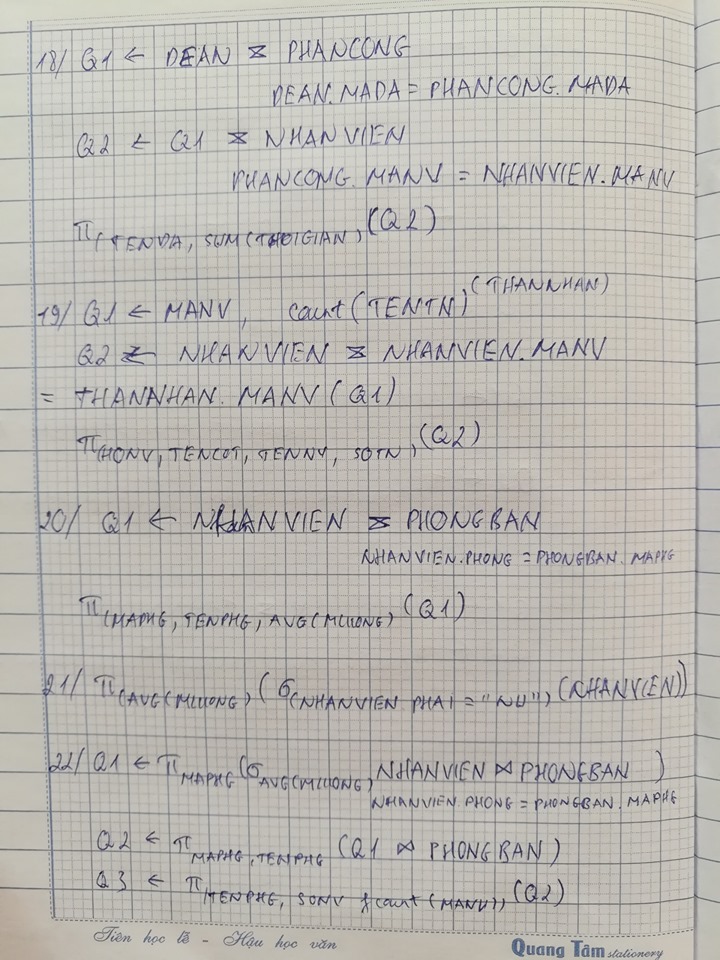 18/ Q1 ← DEAN ⋈ PHANCONG
DEAN.MADA = PHANCONG.MADA
Q2 ← Q1 ⋈ NHANVIEN
PHANCONG.MANV = NHANVIEN.MANV
π(TENDA, SUM(THOIGIAN) (Q2)
19/ Q1 ← MANV, count(TENTN) (THANNHAN)
Q2 ← NHANVIEN ⋈ NHANVIEN.MANV
= THANNHAN.MANV (Q1)
π(HONV, TENLOT, TENNV, SOTN) (Q2)
20/ Q1 ← NHANVIEN ⋈ PHONGBAN
NHANVIEN.PHONG = PHONGBAN.MAPHG
π(MAPHG, TENPHG, AVG(MLUONG) (Q1)
21/ π(AVG(MLUONG) (σ(NHANVIEN PHAI = "NU") (NHANVIEN))
22/ Q1 ← π MAPHG (σ AVG(MLUONG) NHANVIEN ⋈ PHONGBAN )
NHANVIEN.PHONG = PHONGBAN.MAPHG
Q2 ← π MAPHG, TENPHG (Q1 ⋈ PHONGBAN)
Q3 ← π(TENPHG, SONV f count(MANV)) (Q2)
Tiên học lễ - Hậu học văn
Quang Tâm stationery